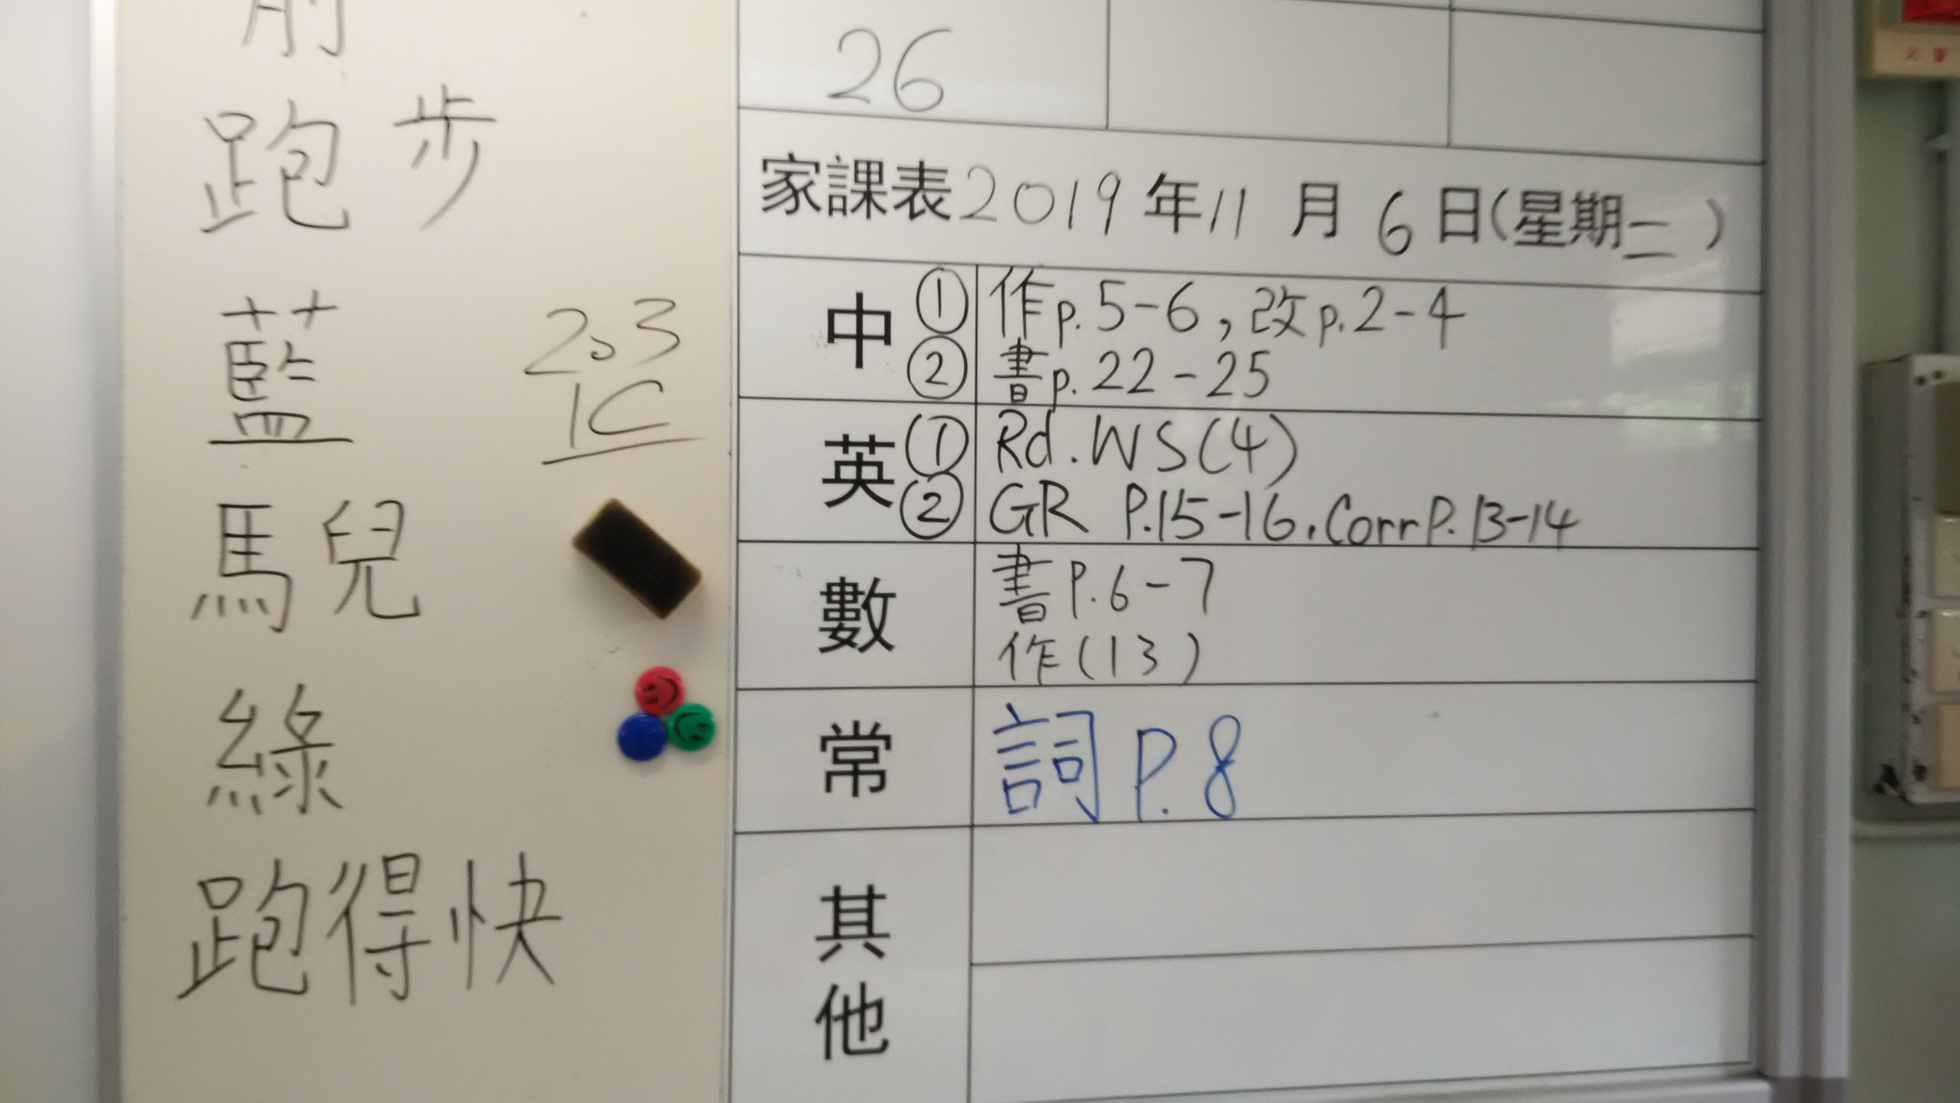 跑步
藍
2.3
1C
馬兒
綠
跑得快
26
家課表2019年11月6日(星期二)
中 ① 作p.5-6,改p.2-4
② 書p.22-25
英 ① Rd.WS(4)
② GR P.15-16.Corr P.13-14
數 書P.6-7
作(13)
常 詞P.8
其他